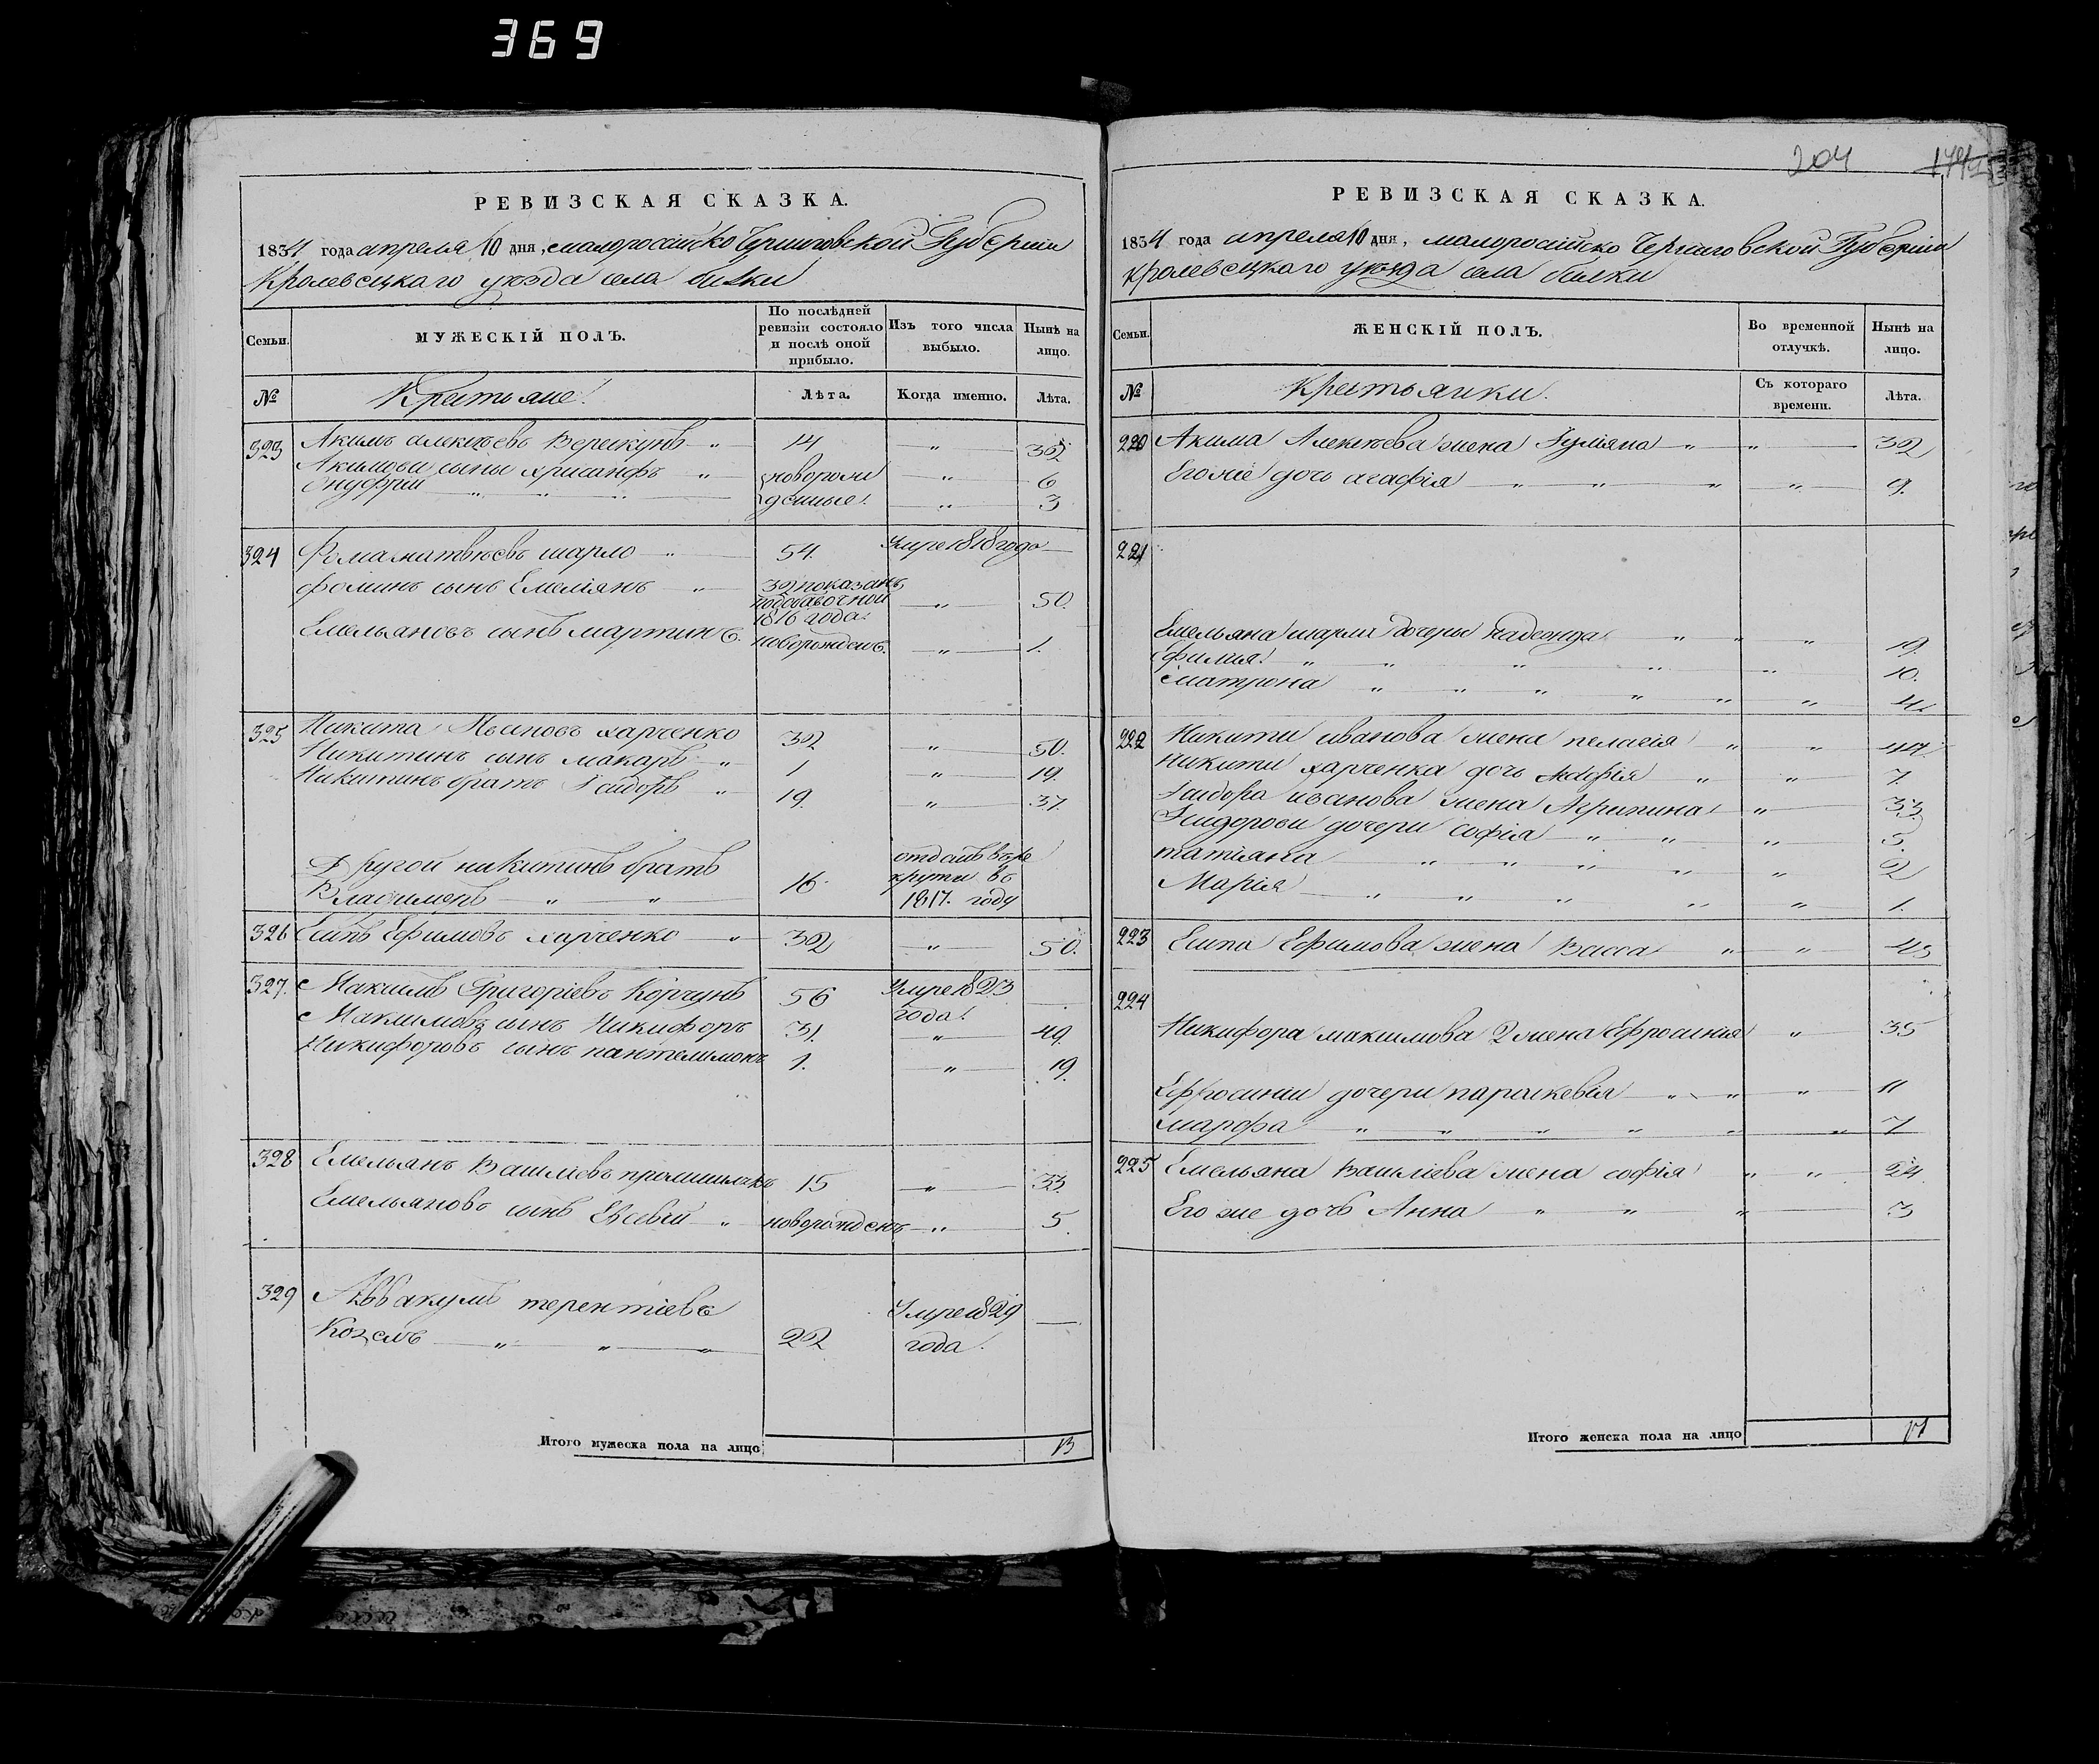 369
204
РЕВИЗСКАЯ СКАЗКА.
1834 года апреля 10 дня, малоросійско Черниговской Губерніи
Кролевецкаго уезда села билки
Семьи. МУЖЕСКІЙ ПОЛЪ. По послѣдней ревизіи состояло и послѣ оной прибыло. Изъ того числа выбыло. Нынѣ на лицо.
№ Крестьяне Лѣта. Когда именно. Лѣта.
323 Акимъ алексѣевъ 14 " 32
Акимови сыны хрисанфъ " новорож " 6
Онуфрій " " " денные " 3
324 Фома матвѣевъ шарло " 54. Умре 1818 года —
фоминъ сынъ Емеліянъ " 32 показанъ
подобавочной " 50.
1816 года
Емельяновъ сынъ мартинъ. новорожденъ. " 1.
325 Никита Ивановъ харченко 32 " 50.
Никитинъ сынъ макаръ " 1 " 19.
Никитинъ братъ Ісидоръ " 19. " 37.
Другой никитинъ братъ отданъ въ ре
Владимеръ " " 16. круты въ
1817. году
326 Есипъ Ефимовъ харченко " 32 " 50.
327. Максимъ Григоріевъ Корчунъ 56 Умре 1823 —
года
Максимовъ сынъ Никифоръ 31. " 49.
Никифоровъ сынъ пантелимонъ 1. " 19.
328 Емельянъ Василіевъ 15 " 33.
Емельяновъ сынъ Евсевій " новорожденъ " 5.
329 Аввакумъ терентіевъ Умре 1829 —
Козелъ " " " 22 года.
Итого мужеска пола на лицо 13
РЕВИЗСКАЯ СКАЗКА.
1834 года апреля 10 дня, малоросійско Черниговской Губерніи
Кролевецкаго уезда села билки
Семьи. ЖЕНСКІЙ ПОЛЪ. Во временной отлучкѣ. Нынѣ на лицо.
№ Крестьянки. Съ котораго времени. Лѣта.
220 Акима Алексѣева жена " " 32
Его же дочь агафія " " " " 9.
221
Емельяна шарла дочеры надежда " " " 19.
" " " " " 10.
матрона " " " " " " 4
222 Никити иванова жена пелагія " " 44.
Никити харченка дочь " " 7.
Ісидора иванова жена Агрипина " 33
Ісидорови дочери софія " " " 5.
татіяна " " " " " 2
Марія " " " " " 1.
223 Есипа Ефимова жена Васса " " 43
224
Никифора максимова 2 жена Ефросинія " 35
Ефросиніи дочери параскевія " " " 11
марфа " " " " " " 7
225 Емельяна Василіева жена софія " " 24.
Его же дочь Анна " " " 3
Итого женска пола на лицо